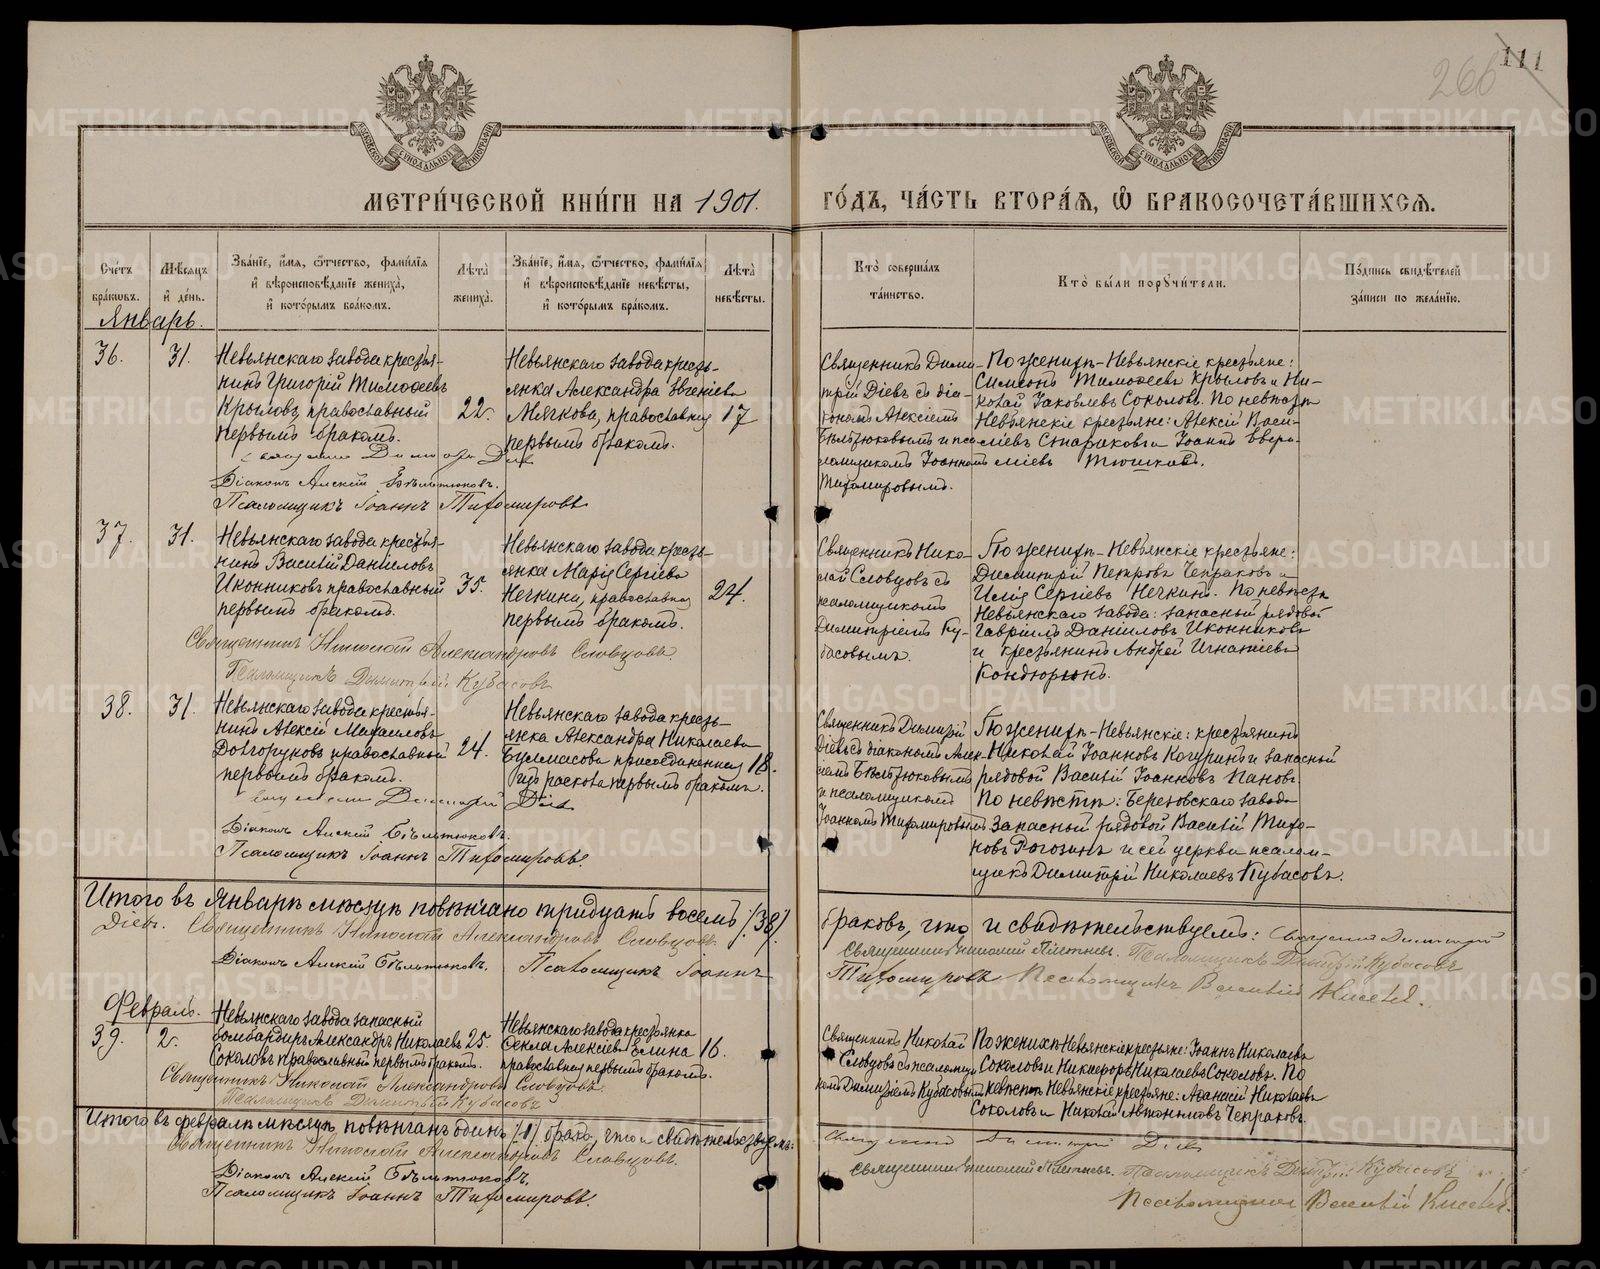 266
111
МОСКОВСКОЙ СУНОДАЛЬНОЙ ТИПОГРАФІИ
МОСКОВСКОЙ СУНОДАЛЬНОЙ ТИПОГРАФІИ
МЕТРИ́ЧЕСКОЙ КНИ́ГИ НА 1901.
ГО́ДЪ, ЧА́СТЬ ВТОРА́Я, Ѿ БРАКОСОЧЕТА́ВШИХСЯ.
Сче́тъ
бра́кѡвъ.
Мѣ́сяцъ
и҆ де́нь.
Зва́нїе, и҆́мя, ѻ҆́тчество, фами́лїя
и҆ вѣроисповѣ́данїе жениха̀,
и҆ кото́рымъ бра́комъ.
Лѣ́та
жениха̀.
Зва́нїе, и҆́мя, ѻ҆́тчество, фами́лїя
и҆ вѣроисповѣ́данїе невѣ́сты,
и҆ кото́рымъ бра́комъ.
Лѣ́та
невѣ́сты.
Кто̀ соверша́лъ
та́инство.
Кто̀ бы́ли поручи́тели.
По́дпись свидѣ́телей
за́писи по жела́нїю.
Январь.
36.
31.
Невьянскаго завода крестья-
нинъ Григорій Тимоѳеевъ
Крыловъ, православный
первымъ бракомъ.
22.
Невьянскаго завода кресть-
янка Александра Евгеніева
Мячкова, православная
первымъ бракомъ.
17
Священникъ Дими-
трій Діевъ съ діа-
кономъ Алексіемъ
Бѣльтюковымъ и пса-
ломщикомъ Іоанномъ
Тихомировымъ.
По женихѣ – Невьянскіе крестьяне:
Симеонъ Тимоѳеевъ Крыловъ и Ни-
колай Іаковлевъ Соколовъ. По невѣстѣ
Невьянскіе крестьяне: Алексій Васи-
ліевъ Стариковъ и Іоаннъ
Діаконъ Алексій Бѣльтюковъ.
Псаломщикъ Іоаннъ Тихомировъ
37.
31.
Невьянскаго завода крестья-
нинъ Василій Даниловъ
Иконниковъ православный
первымъ бракомъ.
35.
Невьянскаго завода кресть-
янка Марія Сергіева
Нечкина, православная
первымъ бракомъ.
24.
Священникъ Нико-
лай Словцовъ съ
псаломщикомъ
Димитріемъ Ку-
басовымъ.
По женихѣ – Невьянскіе крестьяне:
Димитрій Петровъ Чепраковъ и
Илія Сергіевъ Нечкинъ. По невѣстѣ
Невьянскаго завода: запасный рядовой
Гавріилъ Даниловъ Иконниковъ
и крестьянинъ Андрей Игнатіевъ
Кондюринъ.
Священникъ Николай Александровъ Словцовъ.
Псаломщикъ Димитрій Кубасовъ
38.
31.
Невьянскаго завода крестья-
нинъ Алексій Михаиловъ
Долгоруковъ православный
первымъ бракомъ.
24.
Невьянскаго завода кресть-
янка Александра Николаева
присоединенная
изъ раскола первымъ бракомъ.
18.
Священникъ Димитрій
Діевъ съ діакономъ Алек-
сіемъ Бѣльтюковымъ
и псаломщикомъ
Іоанномъ Тихомировымъ
По женихѣ – Невьянскіе: крестьянинъ
Николай Іоанновъ и запасный
рядовой Василій Іоанновъ Пановъ.
По невѣстѣ: Березовскаго завода
запасный рядовой Василій Тихо-
новъ Рогозинъ и сей церкви псалом-
щикъ Димитрій Николаевъ Кубасовъ.
Діаконъ Алексій Бѣльтюковъ.
Псаломщикъ Іоаннъ Тихомировъ.
Итого въ Январѣ мѣсяцѣ повѣнчано тридцать восемь /38/
браковъ, что и свидѣтельствуемъ: Священникъ Димитрій
Діевъ. Священникъ Николай Александровъ Словцовъ
Псаломщикъ Димитрій Кубасовъ
Діаконъ Алексій Бѣльтюковъ. Псаломщикъ Іоаннъ
Тихомировъ Псаломщикъ Василій
Февраль.
39.
2.
Невьянскаго завода запасный
бомбардиръ Александръ Николаевъ
Соколовъ православный первымъ бракомъ.
25.
Невьянскаго завода крестьянка
Ѳекла Алексіева Елина
православная первымъ бракомъ.
16.
Священникъ Николай
Словцовъ съ псаломщи-
комъ Димитріемъ Кубасовымъ
По женихѣ Невьянскіе крестьяне: Іоаннъ Николаевъ
Соколовъ и Никифоръ Николаевъ Соколовъ. По
невѣстѣ Невьянскіе крестьяне: Аѳанасій Николаевъ
Соколовъ и Николай Автономовъ Чепраковъ.
Священникъ Николай Александровъ Словцовъ
Псаломщикъ Димитрій Кубасовъ
Итого въ февралѣ мѣсяцѣ повѣнчанъ одинъ /1/ бракъ, что и свидѣтельствуемъ:
Священникъ Димитрій Діевъ
Священникъ Николай Александровъ Словцовъ.
Псаломщикъ Димитрій Кубасовъ
Діаконъ Алексій Бѣльтюковъ.
Псаломщикъ Іоаннъ Тихомировъ.
Псаломщикъ Василій
METRIKI.GASO-URAL.RU